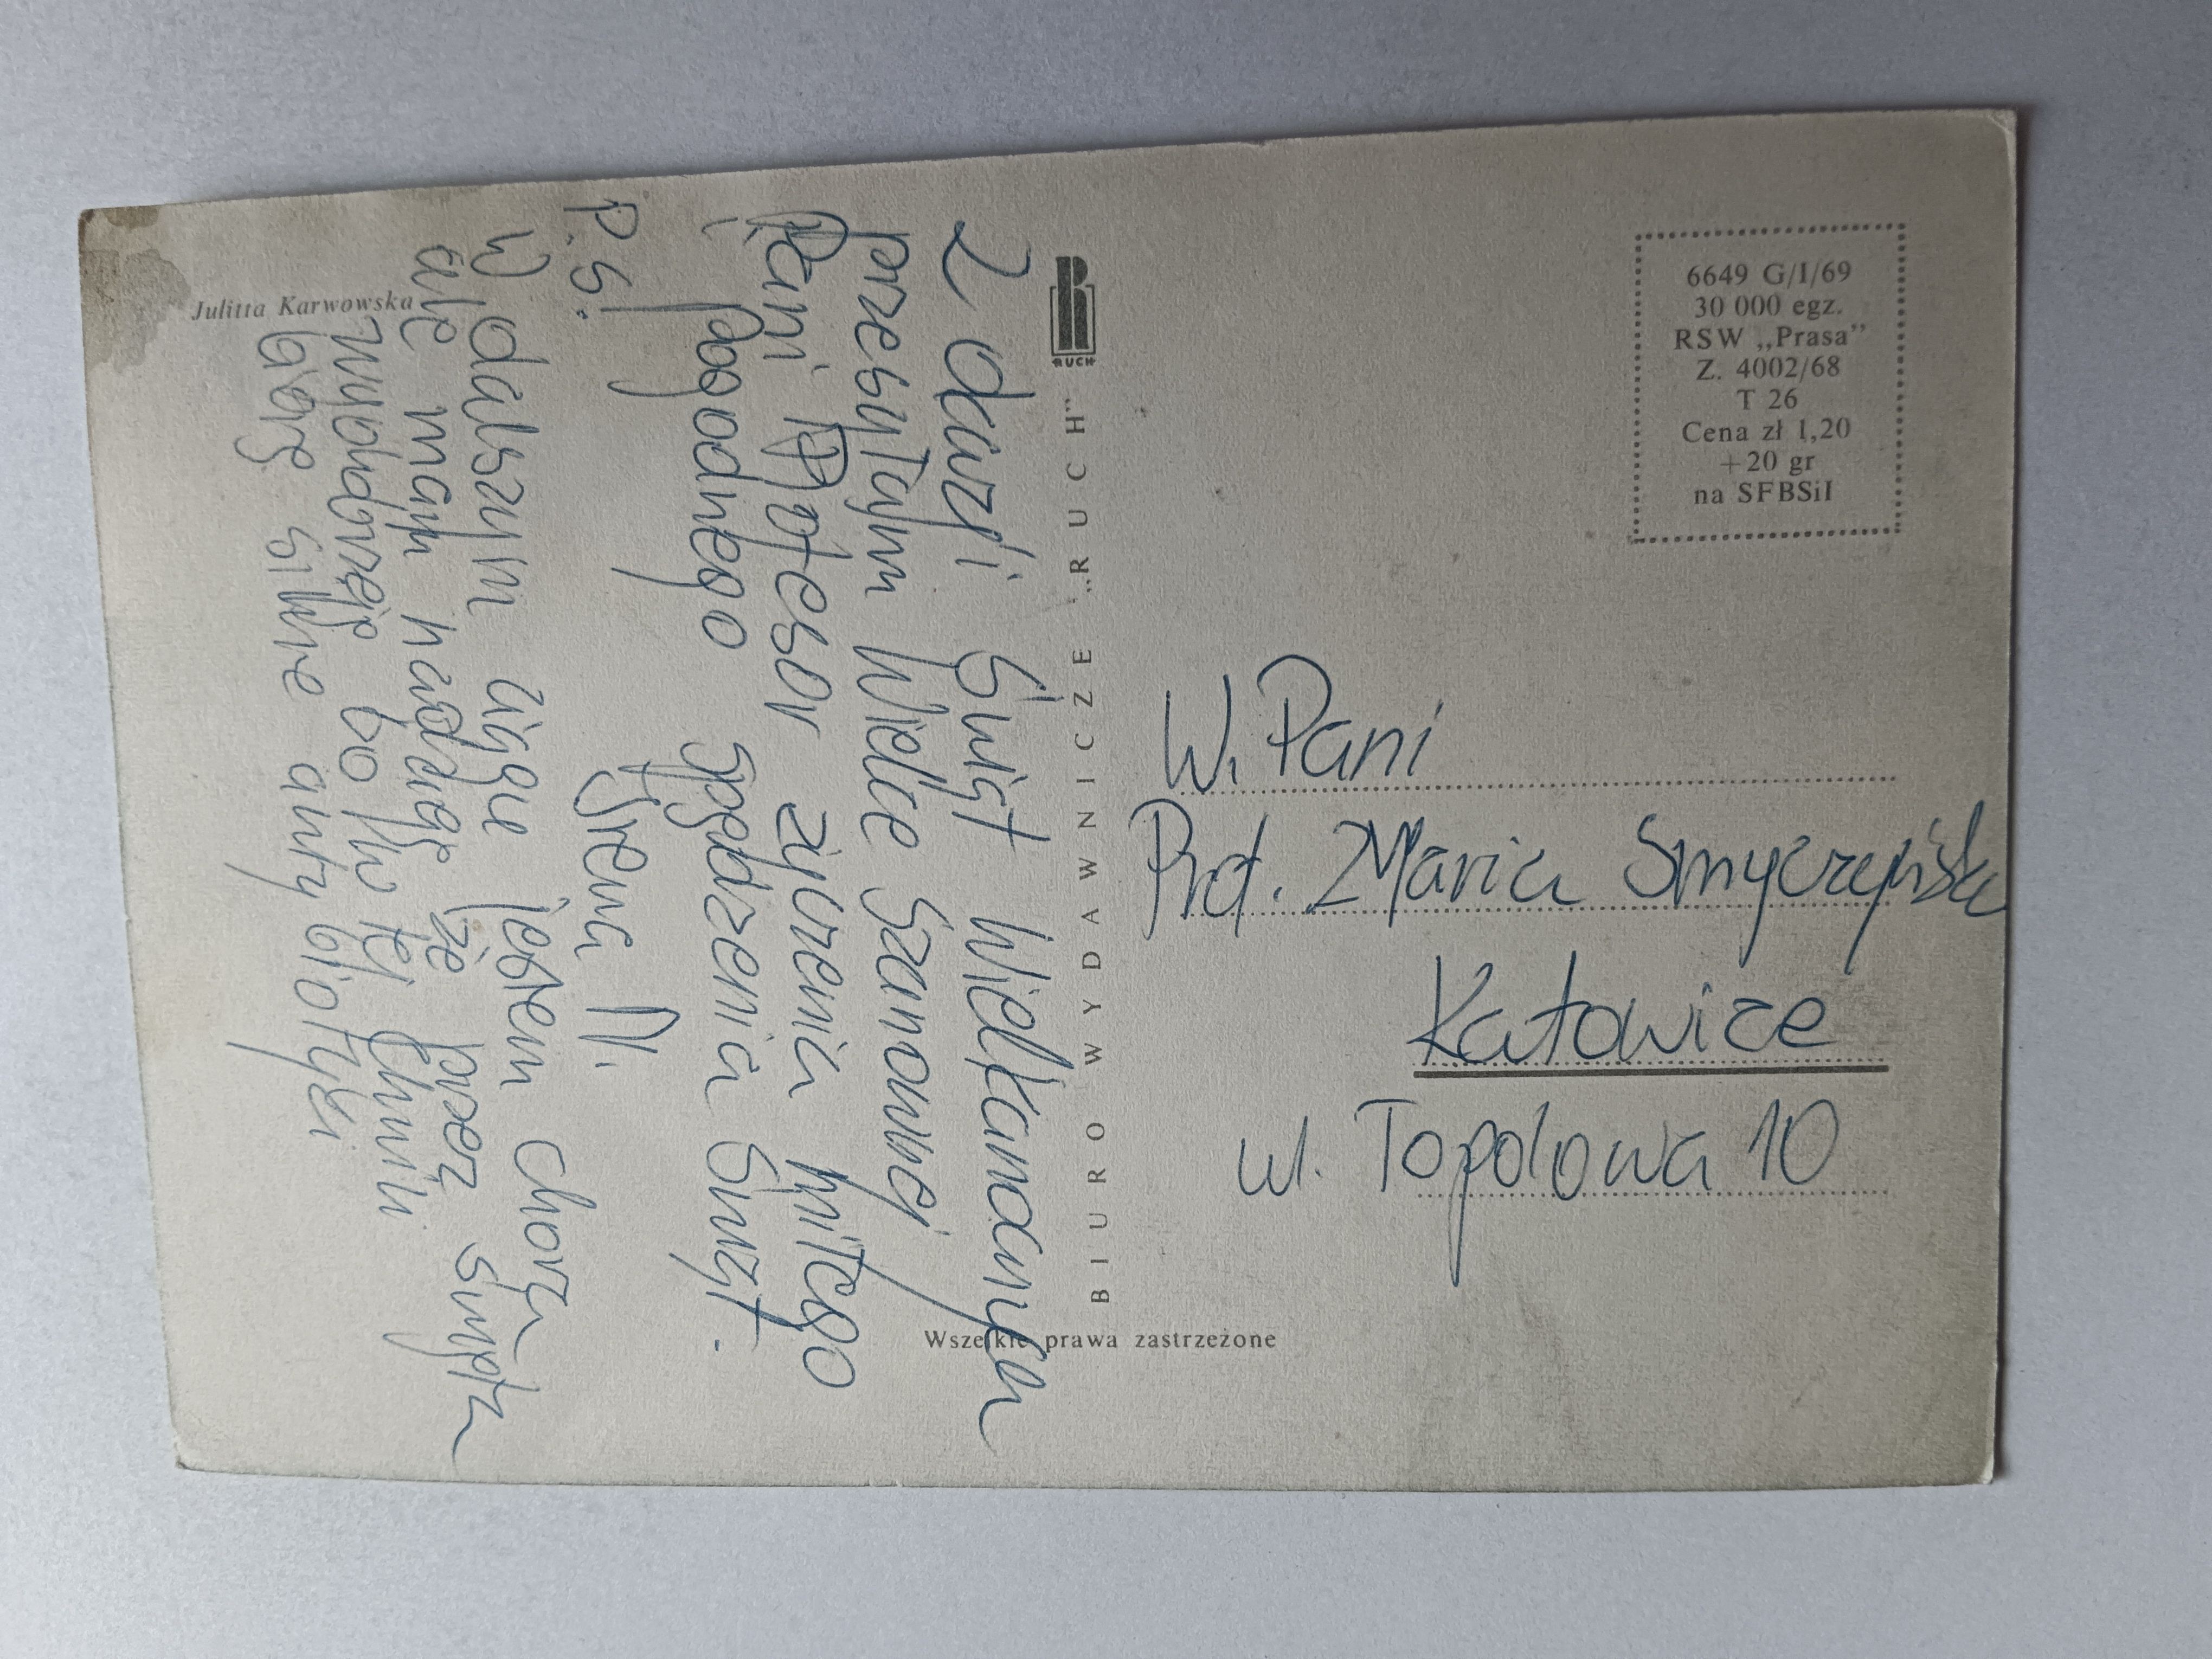 Z okazji Świąt Wielkanocnych
przesyłam Wielce Szanownej
Pani Profesor życzenia miłego
i pogodnego spędzenia Świąt.
Irena N.
P.S.
W dalszym ciągu jestem chora
ale mam nadzieję że przez święta
wydobrzeję bo w tej chwili
biorę silne antybiotyki
Julitta Karwowska
RUCH
BIURO WYDAWNICZE „RUCH”
Wszelkie prawa zastrzeżone
6649 G/I/69
30 000 egz.
RSW „Prasa”
Z. 4002/68
T 26
Cena zł 1,20
+20 gr
na SFBSiI
W. Pani
Prof. Maria
Katowice
ul. Topolowa 10